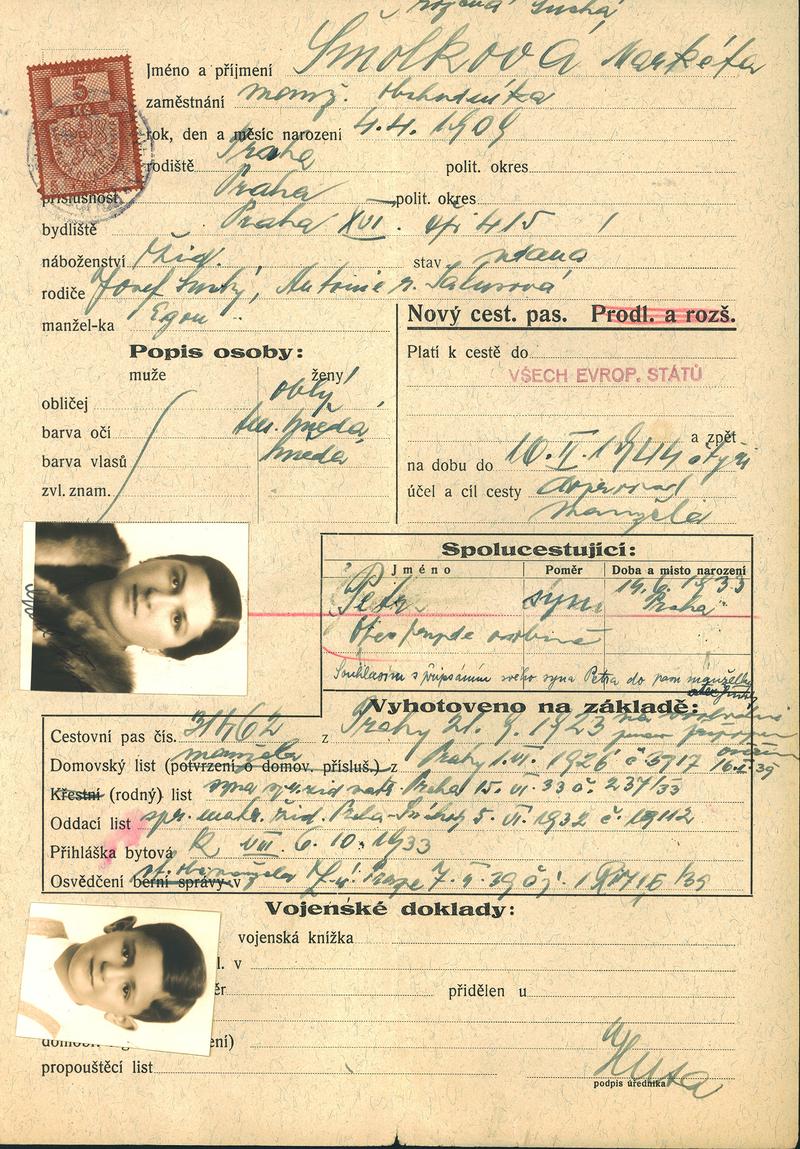 rozená Suchá
Jméno a příjmení Smolková Markéta
KOLEK
5
Kč
zaměstnání manž. obchodníka
rok, den a měsíc narození 4.4. 1909
rodiště Praha polit. okres
příslušnost Praha polit. okres
bydliště Praha XVI. čp 415
náboženství žid. stav vdaná
rodiče Josef Suchý, Antonie r. Salusová
manžel-ka Egon
Nový cest. pas. Prodl. a rozš.
Popis osoby:
muže ženy
obličej oblý
barva očí tm. hnědá
barva vlasů hnědá
zvl. znam.
Platí k cestě do
VŠECH EVROP. STÁTŮ
a zpět
na dobu do 10. II. 1944
účel a cíl cesty doprovod
manžela
Spolucestující:
Jméno Poměr Doba a místo narození
Petr syn 14. 6. 1933
Praha
Souhlasím s připsáním svého syna Petra do pasu manželky
Vyhotoveno na základě:
Cestovní pas čís. z Prahy 21. 9. 1923
manžela
Domovský list (potvrzení o domov. přísluš.) z Prahy 1. VI. 1926 č 3917
Křestní (rodný) list syna Praha 15. VI. 33 č. 237/33
Oddací list žid. Praha 5. VI. 1932 č. 19112
Přihláška bytová R VIII. 6. 10. 1933
Osvědčení berní správy v
Vojenské doklady:
vojenská knížka
l. v
ěr přidělen u
ení)
propouštěcí list
podpis úředníka